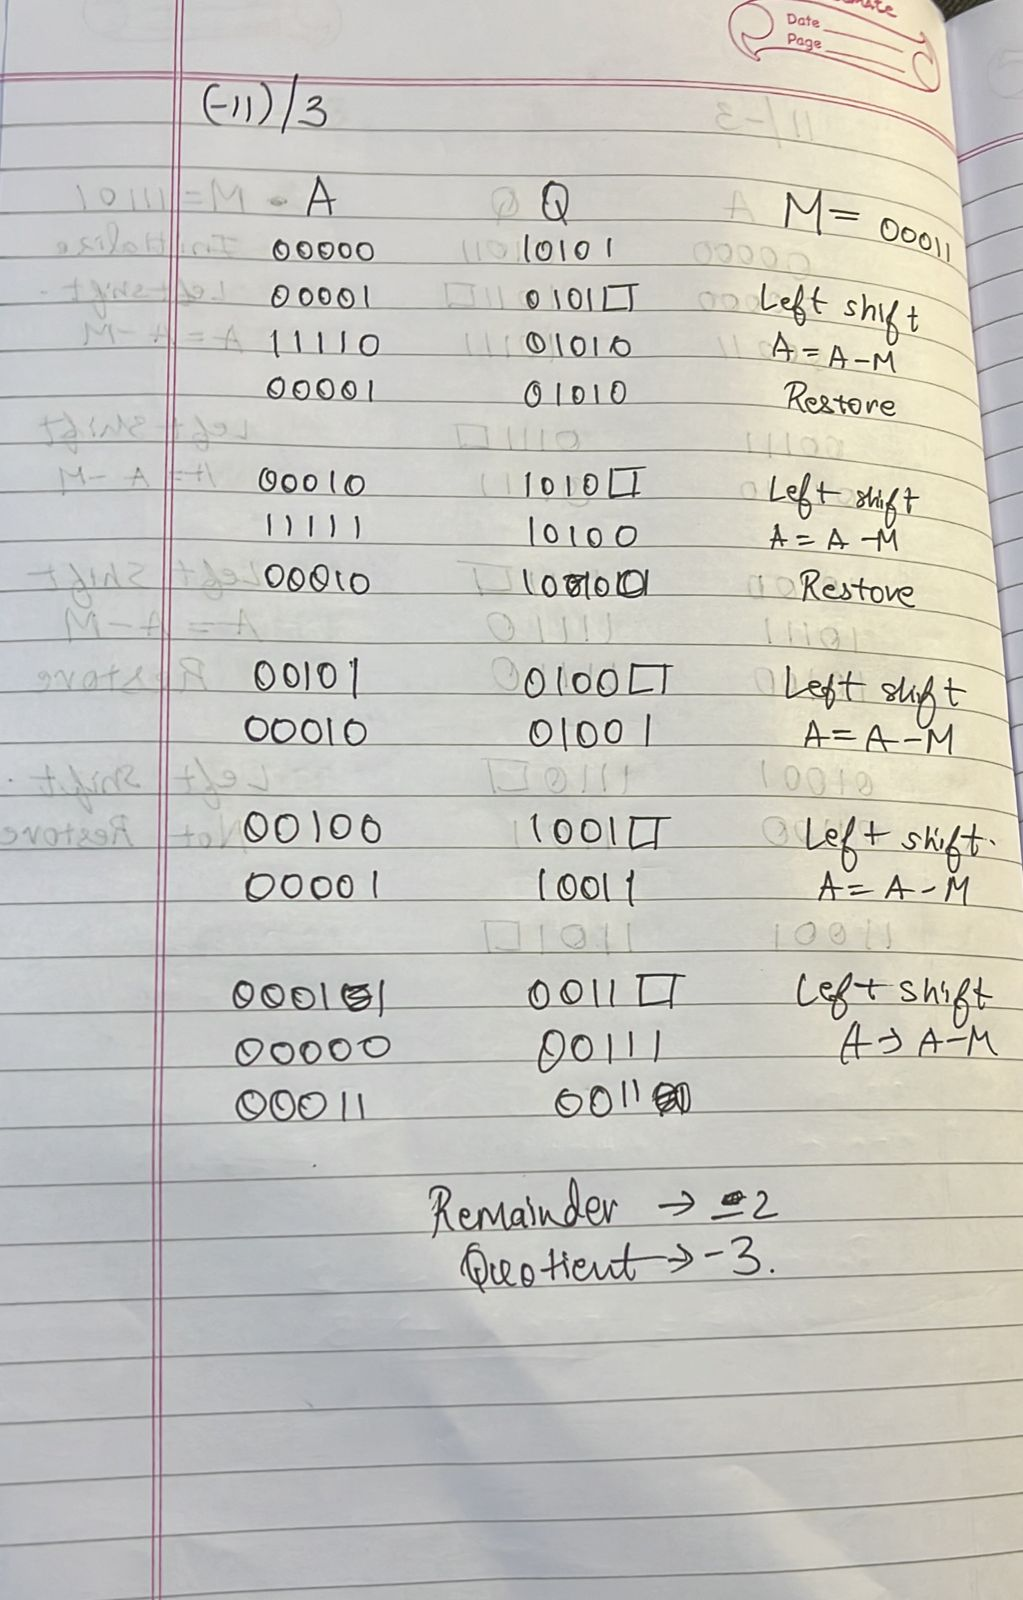 Date
Page
(-11)/3
A Q M = 00011
00000 10101
00001 0101□ Left shift
11110 01010 A = A-M
00001 01010 Restore
00010 1010□ Left shift
11111 10100 A = A-M
00010 Restore
00101 0100□ Left shift
00010 01001 A = A-M
00100 1001□ Left shift.
00001 10011 A = A-M
0001 1 0011□ Left shift
00000 00111 A → A-M
00011 0011
Remainder → -2
Quotient → -3.